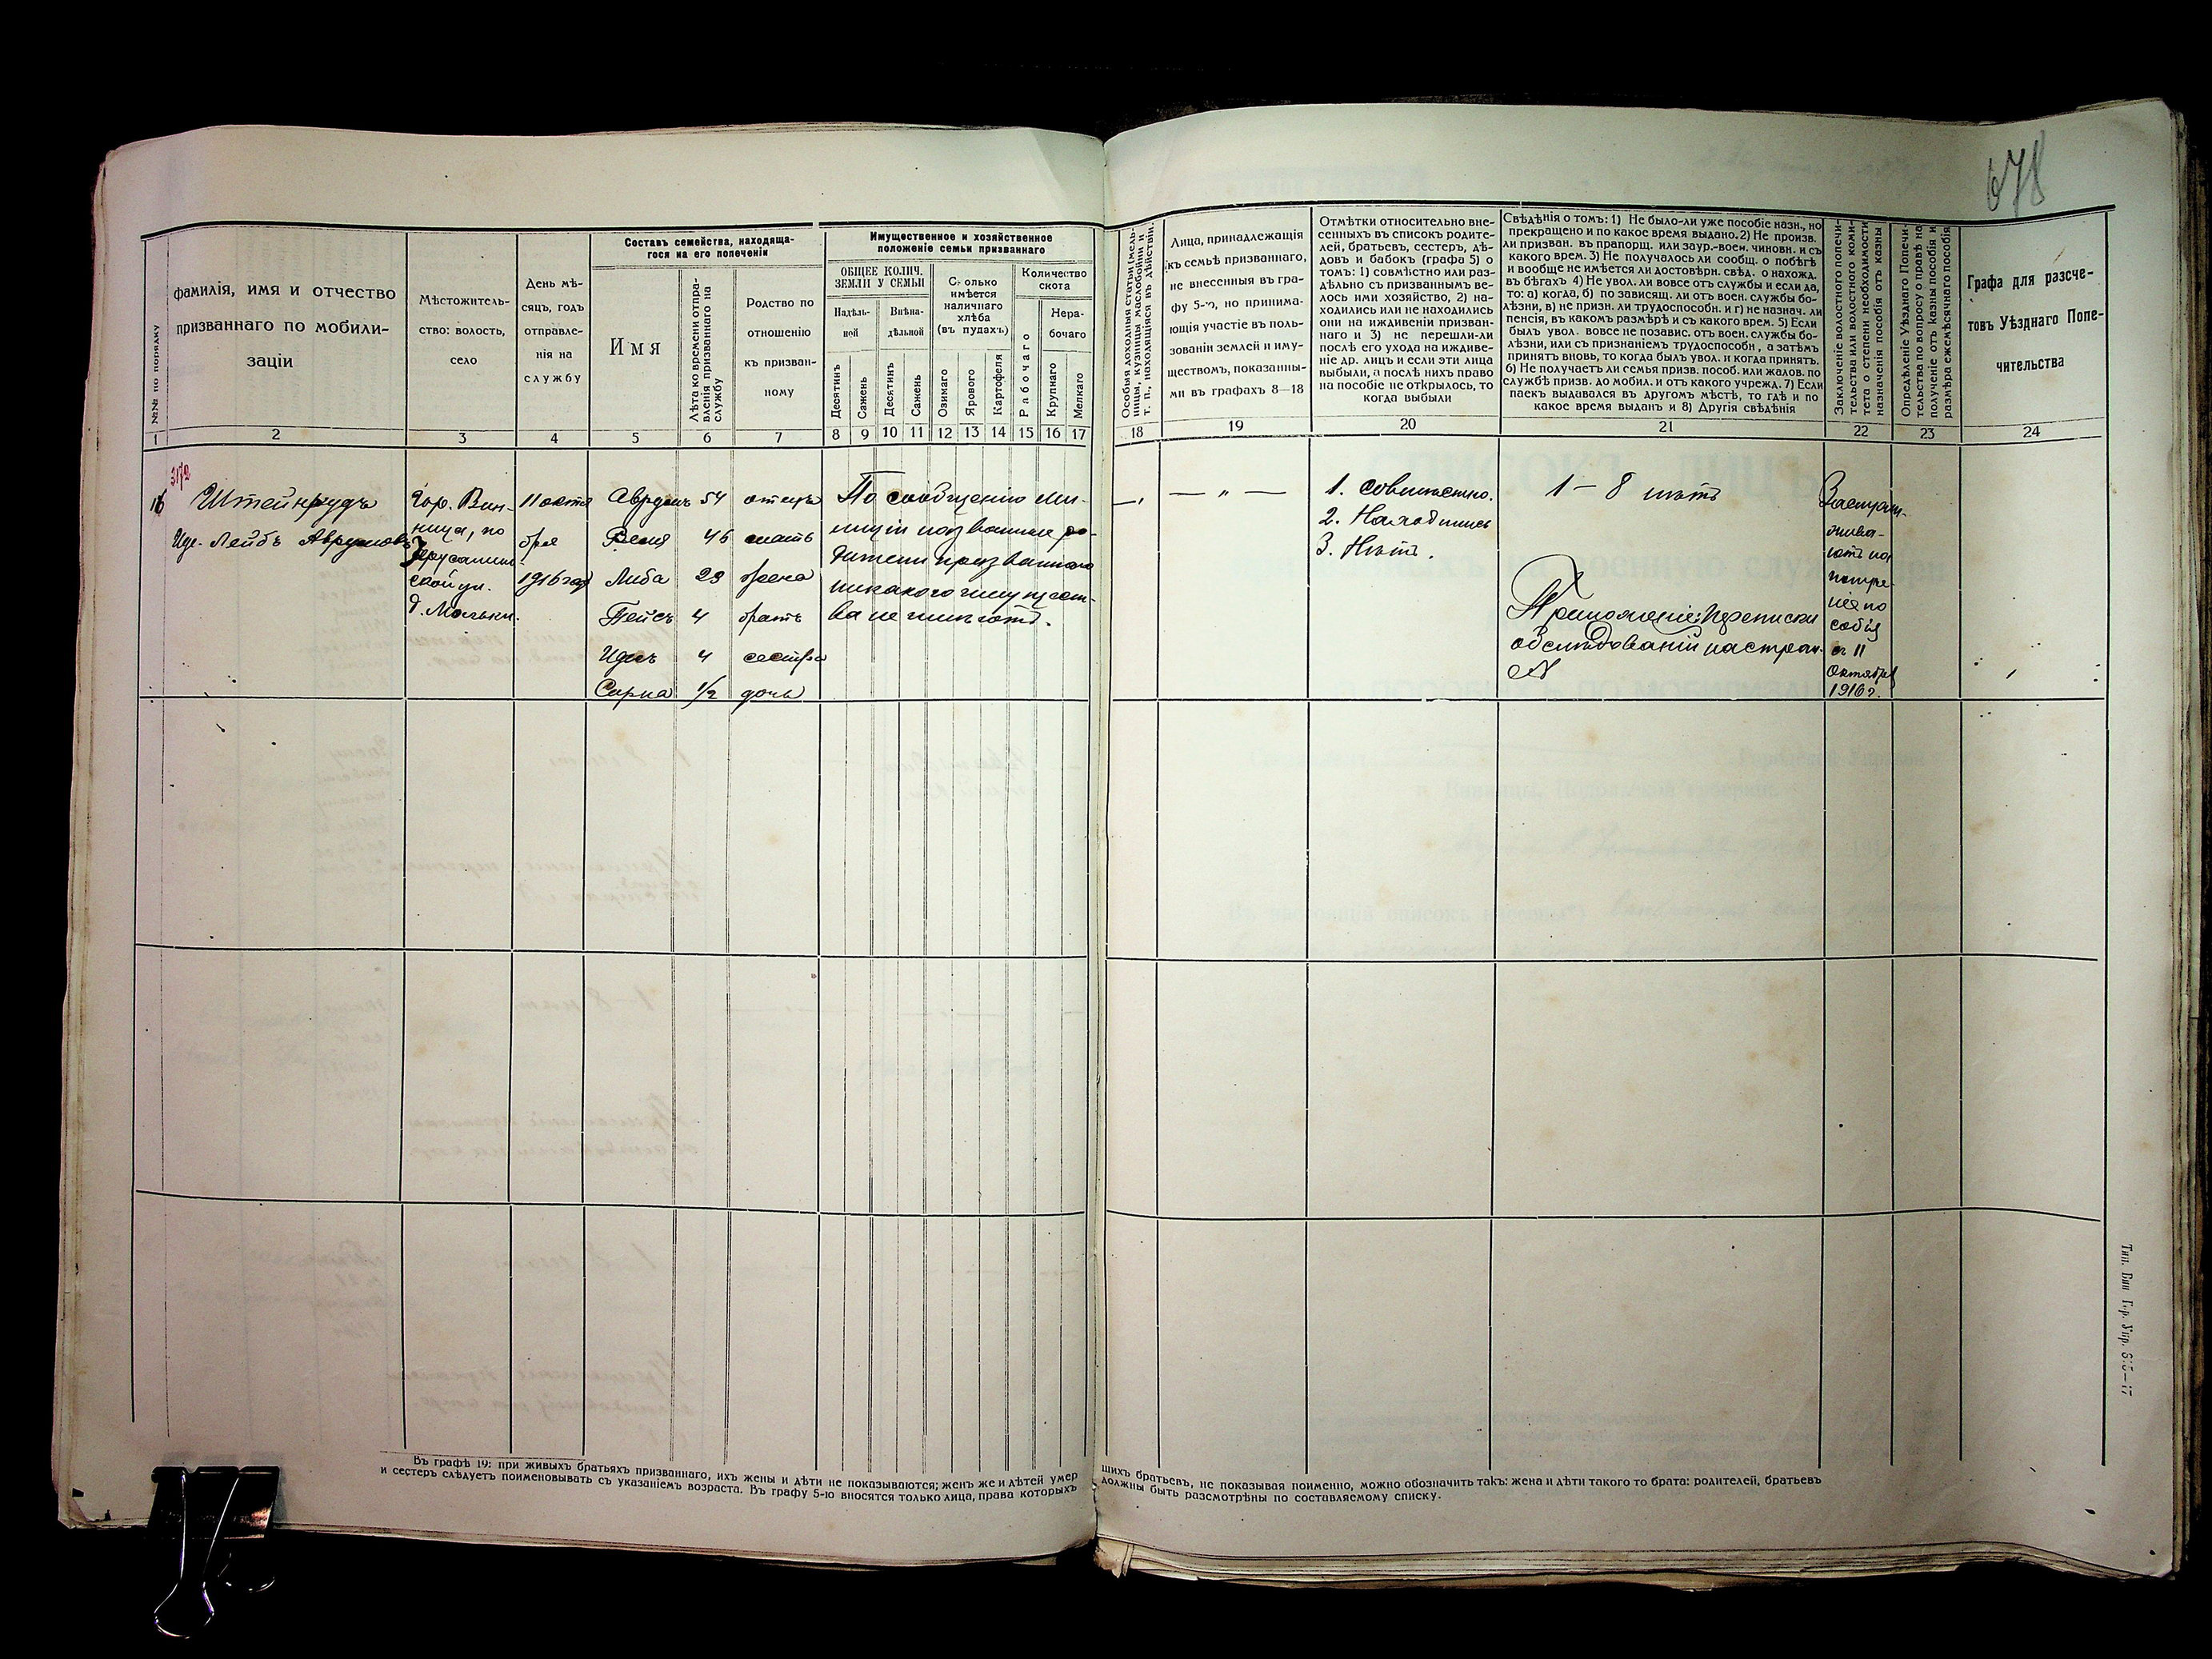 678
№№ по порядку
фамилія, имя и отчество
призваннаго по мобили-
заціи
Мѣстожитель-
ство: волость,
село
День мѣ-
сяцъ, годъ
отправле-
нія на
службу
Составъ семейства, находяща-
гося на его попеченіи
Имя
Лѣта ко времени отпра-
вленія призваннаго на
службу
Родство по
отношенію
къ призван-
ному
Имущественное и хозяйственное
положеніе семьи призваннаго
ОБЩЕЕ КОЛИЧ.
ЗЕМЛИ У СЕМЬИ
Надѣль-
ной
Внѣна-
дѣльной
Десятинъ
Сажень
Десятинъ
Сажень
Сколько
имѣется
наличнаго
хлѣба
(въ пудахъ)
Озимаго
Ярового
Картофеля
Количество
скота
Рабочаго
Нера-
бочаго
Крупнаго
Мелкаго
Особыя доходныя статьи (мель-
ницы, кузницы, маслобойни и
т. п., находящіяся въ дѣйствіи.
Лица, принадлежащія
къ семьѣ призваннаго,
не внесенныя въ гра-
фу 5-ю, но принима-
ющія участіе въ поль-
зованіи землей и иму-
ществомъ, показанны-
ми въ графахъ 8—18
Отмѣтки относительно вне-
сенныхъ въ списокъ родите-
лей, братьевъ, сестеръ, дѣ-
довъ и бабокъ (графа 5) о
томъ: 1) совмѣстно или раз-
дѣльно съ призваннымъ ве-
лось ими хозяйство, 2) на-
ходились или не находились
они на иждивеніи призван-
наго и 3) не перешли-ли
послѣ его ухода на иждиве-
ніе др. лицъ и если эти лица
выбыли, а послѣ нихъ право
на пособіе не открылось, то
когда выбыли
Свѣдѣнія о томъ: 1) Не было-ли уже пособіе назн., но
прекращено и по какое время выдано. 2) Не произв.
ли призван. въ прапорщ. или заур.-воен. чиновн. и съ
какого врем. 3) Не получалось ли сообщ. о побѣгѣ
и вообще не имѣется ли достовѣрн. свѣд. о нахожд.
въ бѣгахъ 4) Не увол. ли вовсе отъ службы и если да,
то: а) когда, б) по зависящ. ли отъ воен. службы бо-
лѣзни, в) не призн. ли трудоспособн. и г) не назнач. ли
пенсія, въ какомъ размѣрѣ и съ какого врем. 5) Если
былъ увол. вовсе не позавис. отъ воен. службы бо-
лѣзни, или съ признаніемъ трудоспособн, а затѣмъ
принятъ вновь, то когда былъ увол. и когда принятъ.
6) Не получаетъ ли семья призв. пособ. или жалов. по
службѣ призв. до мобил. и отъ какого учрежд. 7) Если
паекъ выдавался въ другомъ мѣстѣ, то гдѣ и по
какое время выданъ и 8) Другія свѣдѣнія
Заключеніе волостного попечи-
тельства или волостного коми-
тета о степени необходимости
назначенія пособія отъ казны
Опредѣленіе Уѣзднаго Попечи-
тельства по вопросу о правѣ на
полученіе отъ казны пособія и
размѣра ежемѣсячнаго пособія
Графа для разсче-
товъ Уѣзднаго Попе-
чительства
1 2 3 4 5 6 7 8 9 10 11 12 13 14 15 16 17 18 19 20 21 22 23 24
3172
16 Штейнрудъ
Иде-Лейбъ Аврумовъ
Гор. Вин-
ница, по
Ерусалим
ской ул.
д. Мальки.
11 октя
бря
1916 год
Аврумъ 54 отецъ
Веля 46 мать
Либа 23 жена
Пейсъ 4 братъ
Идесъ 4 сестра
Сарна 1/2 дочь
По сообщенію Ми-
лиціи названные ро-
дители призваннаго
никакого имущест-
ва не имѣютъ.
— „ —
1. совмѣстно.
2. Находились
3. Нѣтъ.
1 — 8 нѣтъ
Приложеніе: Переписка
обслѣдованій на стран.
№
Заслужи-
вают на
пособія
съ 11
Октября
1916 г.
Въ графѣ 19: при живыхъ братьяхъ призваннаго, ихъ жены и дѣти не показываются; женъ же и дѣтей умер
шихъ братьевъ, не показывая поименно, можно обозначить такъ: жена и дѣти такого то брата: родителей, братьевъ
и сестеръ слѣдуетъ поименовывать съ указаніемъ возраста. Въ графу 5-ю вносятся только лица, права которыхъ
должны быть разсмотрѣны по составляемому списку.
Тип. Вин Гор. Упр. 615—17